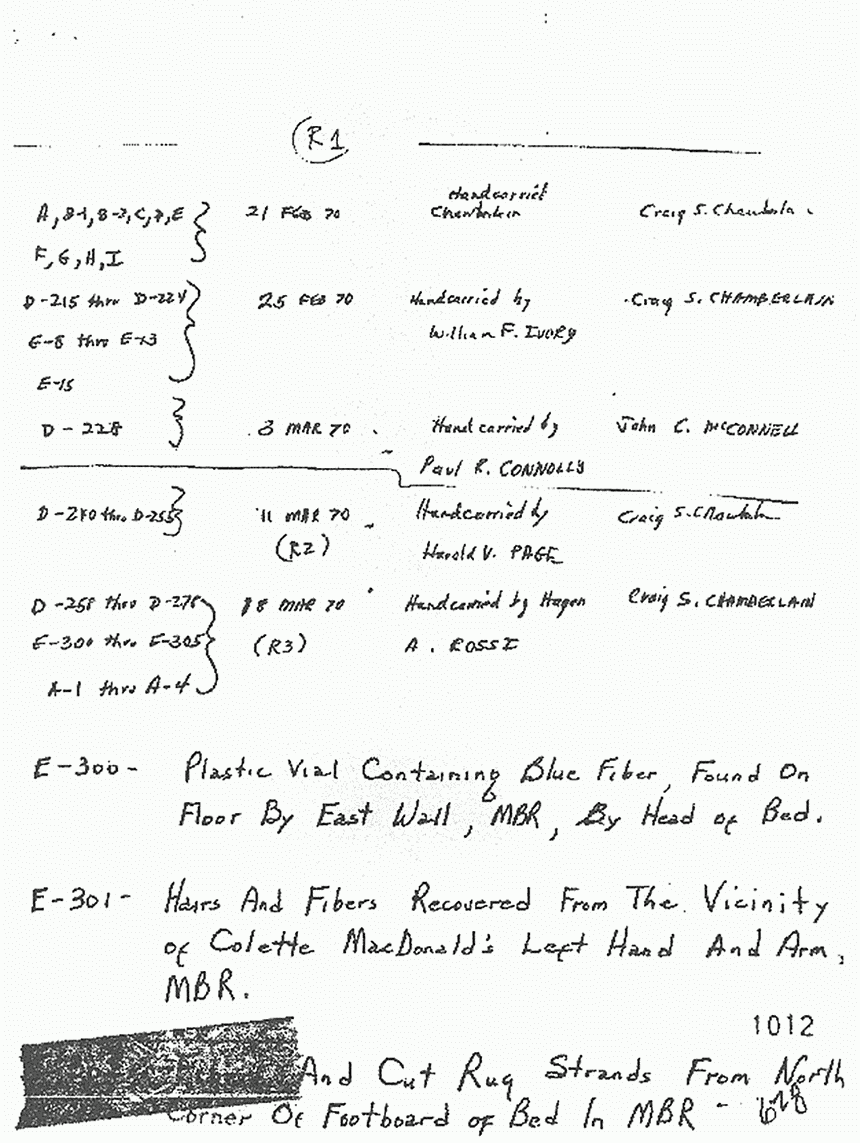 R1
A, B-1, B-2, C, D, E 21 FEB 70 Handcarried Chamberlain Craig S. Chamberla
F, G, H, I
D-215 thru D-224 25 FEB 70 Handcarried by Craig S. CHAMBERLAIN
E-8 thru E-13 William F. IVORY
E-15
D-228 3 MAR 70 Hand carried by John C. McCONNELL
Paul R. CONNOLLY
D-240 thru D-255 11 MAR 70 Handcarried by Craig S.
(R2) Harold V. PAGE
D-258 thru D-278 18 MAR 70 Handcarried by Hagen Craig S. CHAMBERLAIN
E-300 thru E-305 (R3) A. ROSSI
A-1 thru A-4
E-300- Plastic Vial Containing Blue Fiber, Found On
Floor By East Wall, MBR, By Head of Bed.
E-301- Hairs And Fibers Recovered From The Vicinity
of Colette MacDonald's Left Hand And Arm,
MBR.
1012
And Cut Rug Strands From North
Corner Of Footboard of Bed In MBR - 628